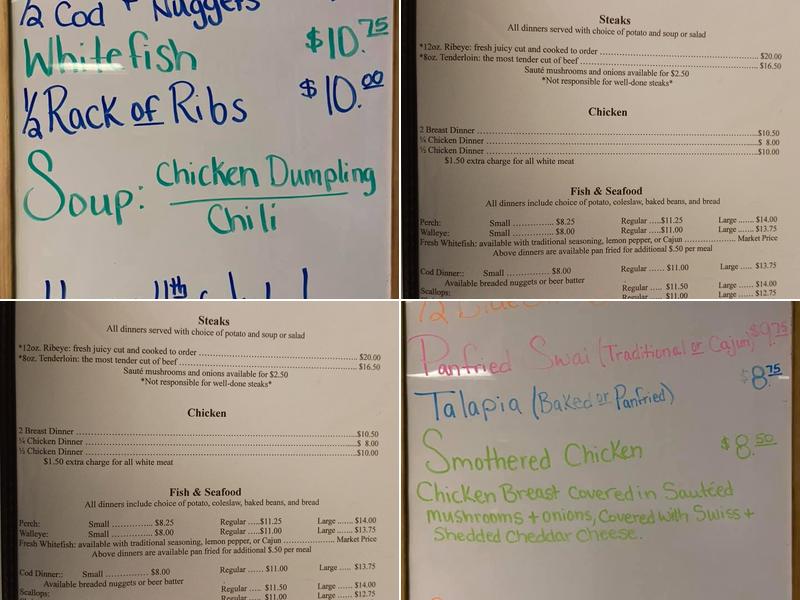 1/2 Cod + Nuggets
Whitefish $10.75
1/2 Rack of Ribs $10.00
Soup: Chicken Dumpling
Chili
11th
Steaks
All dinners served with choice of potato and soup or salad
*12oz. Ribeye: fresh juicy cut and cooked to order ........ $20.00
*8oz. Tenderloin: the most tender cut of beef ........ $16.50
Sauté mushrooms and onions available for $2.50
*Not responsible for well-done steaks*
Chicken
2 Breast Dinner ........ $10.50
¼ Chicken Dinner ........ $ 8.00
½ Chicken Dinner ........ $10.00
$1.50 extra charge for all white meat
Fish & Seafood
All dinners include choice of potato, coleslaw, baked beans, and bread
Perch: Small ........ $8.25 Regular .....$11.25 Large ....... $14.00
Walleye: Small ........ $8.00 Regular .....$11.00 Large ....... $13.75
Fresh Whitefish: available with traditional seasoning, lemon pepper, or Cajun ........ Market Price
Above dinners are available pan fried for additional $.50 per meal
Cod Dinner:: Small ........ $8.00 Regular ..... $11.00 Large ..... $13.75
Available breaded nuggets or beer batter
Scallops: Regular ..... $11.50 Large ....... $14.00
$11.00 Large ....... $12.75
Steaks
All dinners served with choice of potato and soup or salad
*12oz. Ribeye: fresh juicy cut and cooked to order ........ $20.00
*8oz. Tenderloin: the most tender cut of beef ........ $16.50
Sauté mushrooms and onions available for $2.50
*Not responsible for well-done steaks*
Chicken
2 Breast Dinner ........ $10.50
¼ Chicken Dinner ........ $ 8.00
½ Chicken Dinner ........ $10.00
$1.50 extra charge for all white meat
Fish & Seafood
All dinners include choice of potato, coleslaw, baked beans, and bread
Perch: Small ........ $8.25 Regular .....$11.25 Large ....... $14.00
Walleye: Small ........ $8.00 Regular .....$11.00 Large ....... $13.75
Fresh Whitefish: available with traditional seasoning, lemon pepper, or Cajun ........ Market Price
Above dinners are available pan fried for additional $.50 per meal
Cod Dinner:: Small ........ $8.00 Regular ..... $11.00 Large ..... $13.75
Available breaded nuggets or beer batter
Scallops: Regular ..... $11.50 Large ....... $14.00
Regular ..... $11.00 Large ....... $12.75
1/2
Panfried Swai (Traditional or Cajun) $9.75
Talapia (Baked or Panfried) $8.75
Smothered Chicken $8.50
Chicken Breast Covered in Sautéed
mushrooms + onions, Covered with Swiss +
Shedded Cheddar Cheese.